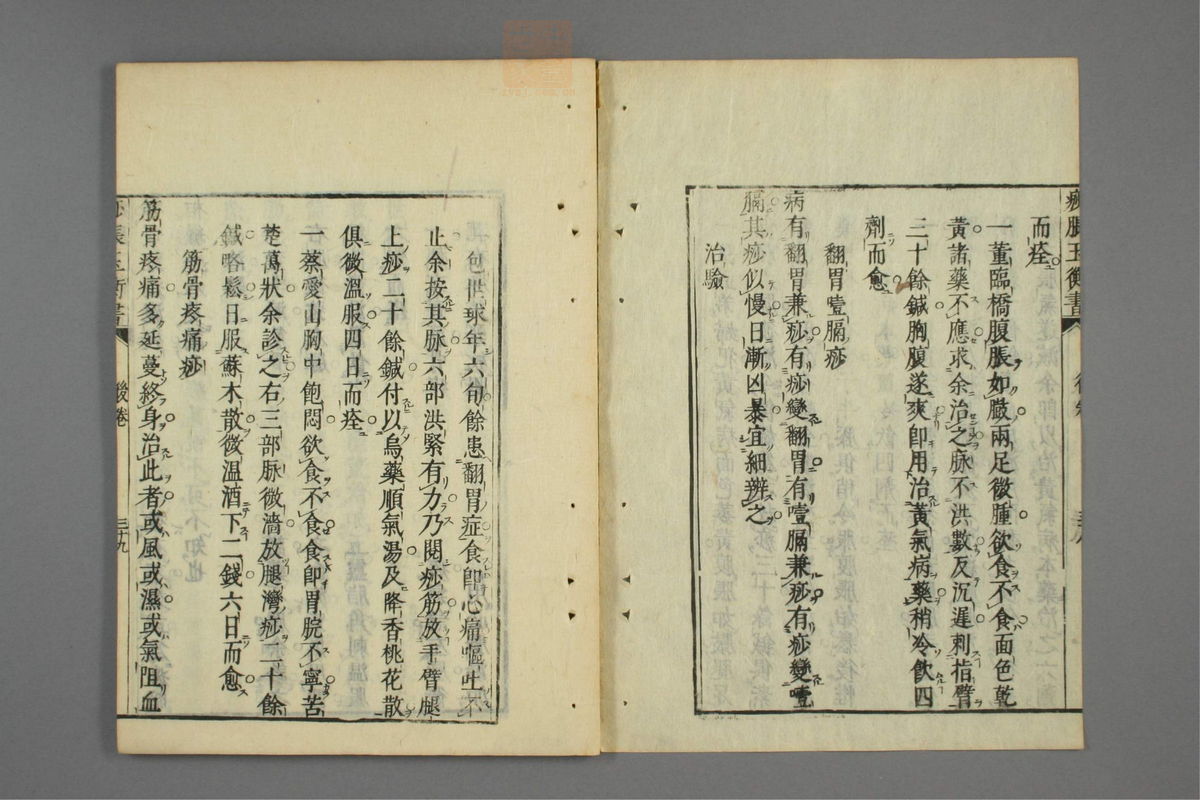 痧脹玉衡書
而痊
一董臨橋腹脹如鼓兩足微腫欲食不食面色乾
黃諸藥不應求余治之脉不洪數反沉遲刺指臂
三十餘鍼胸腹遂爽卽用治黃氣病藥稍冷飲四
劑而愈
翻胃噎膈痧
病有翻胃兼痧有痧變翻胃有噎膈兼痧有痧變噎
膈其痧似慢日漸凶暴宜細辨之
治驗
一包世球年六旬餘患翻胃症食卽心痛嘔吐不
止余按其脉六部洪緊有力乃閱痧筋放手臂腿
上痧二十餘鍼付以烏藥順氣湯及降香桃花散
俱微溫服四日而痊
一蔡愛山胸中飽悶欲食不食食卽胃脘不寧苦
楚萬狀余診之右三部脉微濇放腿灣痧二十餘
鍼略鬆日服蘇木散微溫酒下二錢六日而愈
筋骨疼痛痧
筋骨疼痛多延蔓終身治此者或風或濕或氣阻血
痧脹玉衡書
後卷
三十九